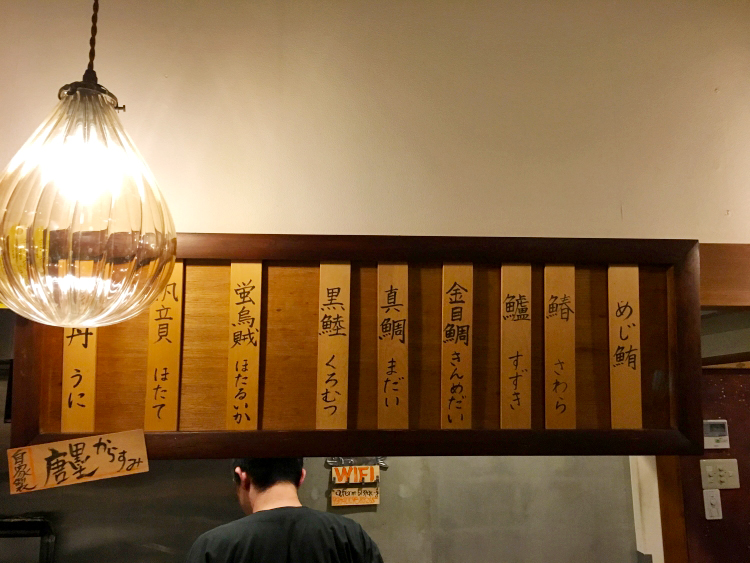 めじ鮪
鰆 さわら
鱸 すずき
金目鯛 きんめだい
真鯛 まだい
黒鯥 くろむつ
蛍烏賊 ほたるいか
帆立貝 ほたて
丹 うに
自家製 唐墨 からすみ
WIFI